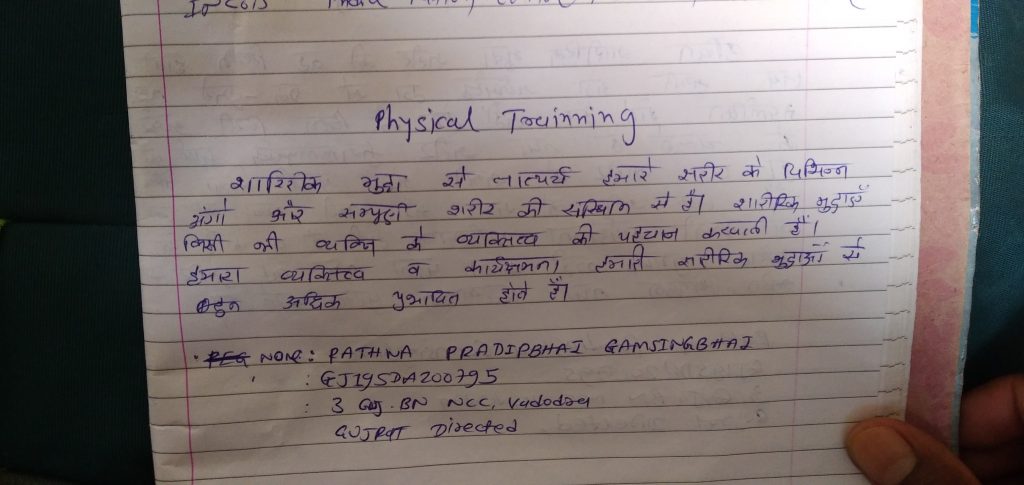 In 2013
Physical Trainning
शारिरीक मुद्रा से तात्पर्य हमारे शरीर के विभिन्न
अंगो और सम्पूर्ण शरीर की से है। शारीरिक मुद्राएँ
किसी भी व्यक्ति के व्यक्तित्व की पहचान करवाती हैं।
हमारा व्यक्तित्व व कार्यक्षमता हमारी शारीरिक मुद्राओं से
बहुत अधिक प्रभावित होते हैं।
NAME: PATHNA PRADIPBHAI GAMSINGBHAI
: GJ19SDA200795
: 3 Guj. BN NCC, Vadodra
GUJRAT Directed